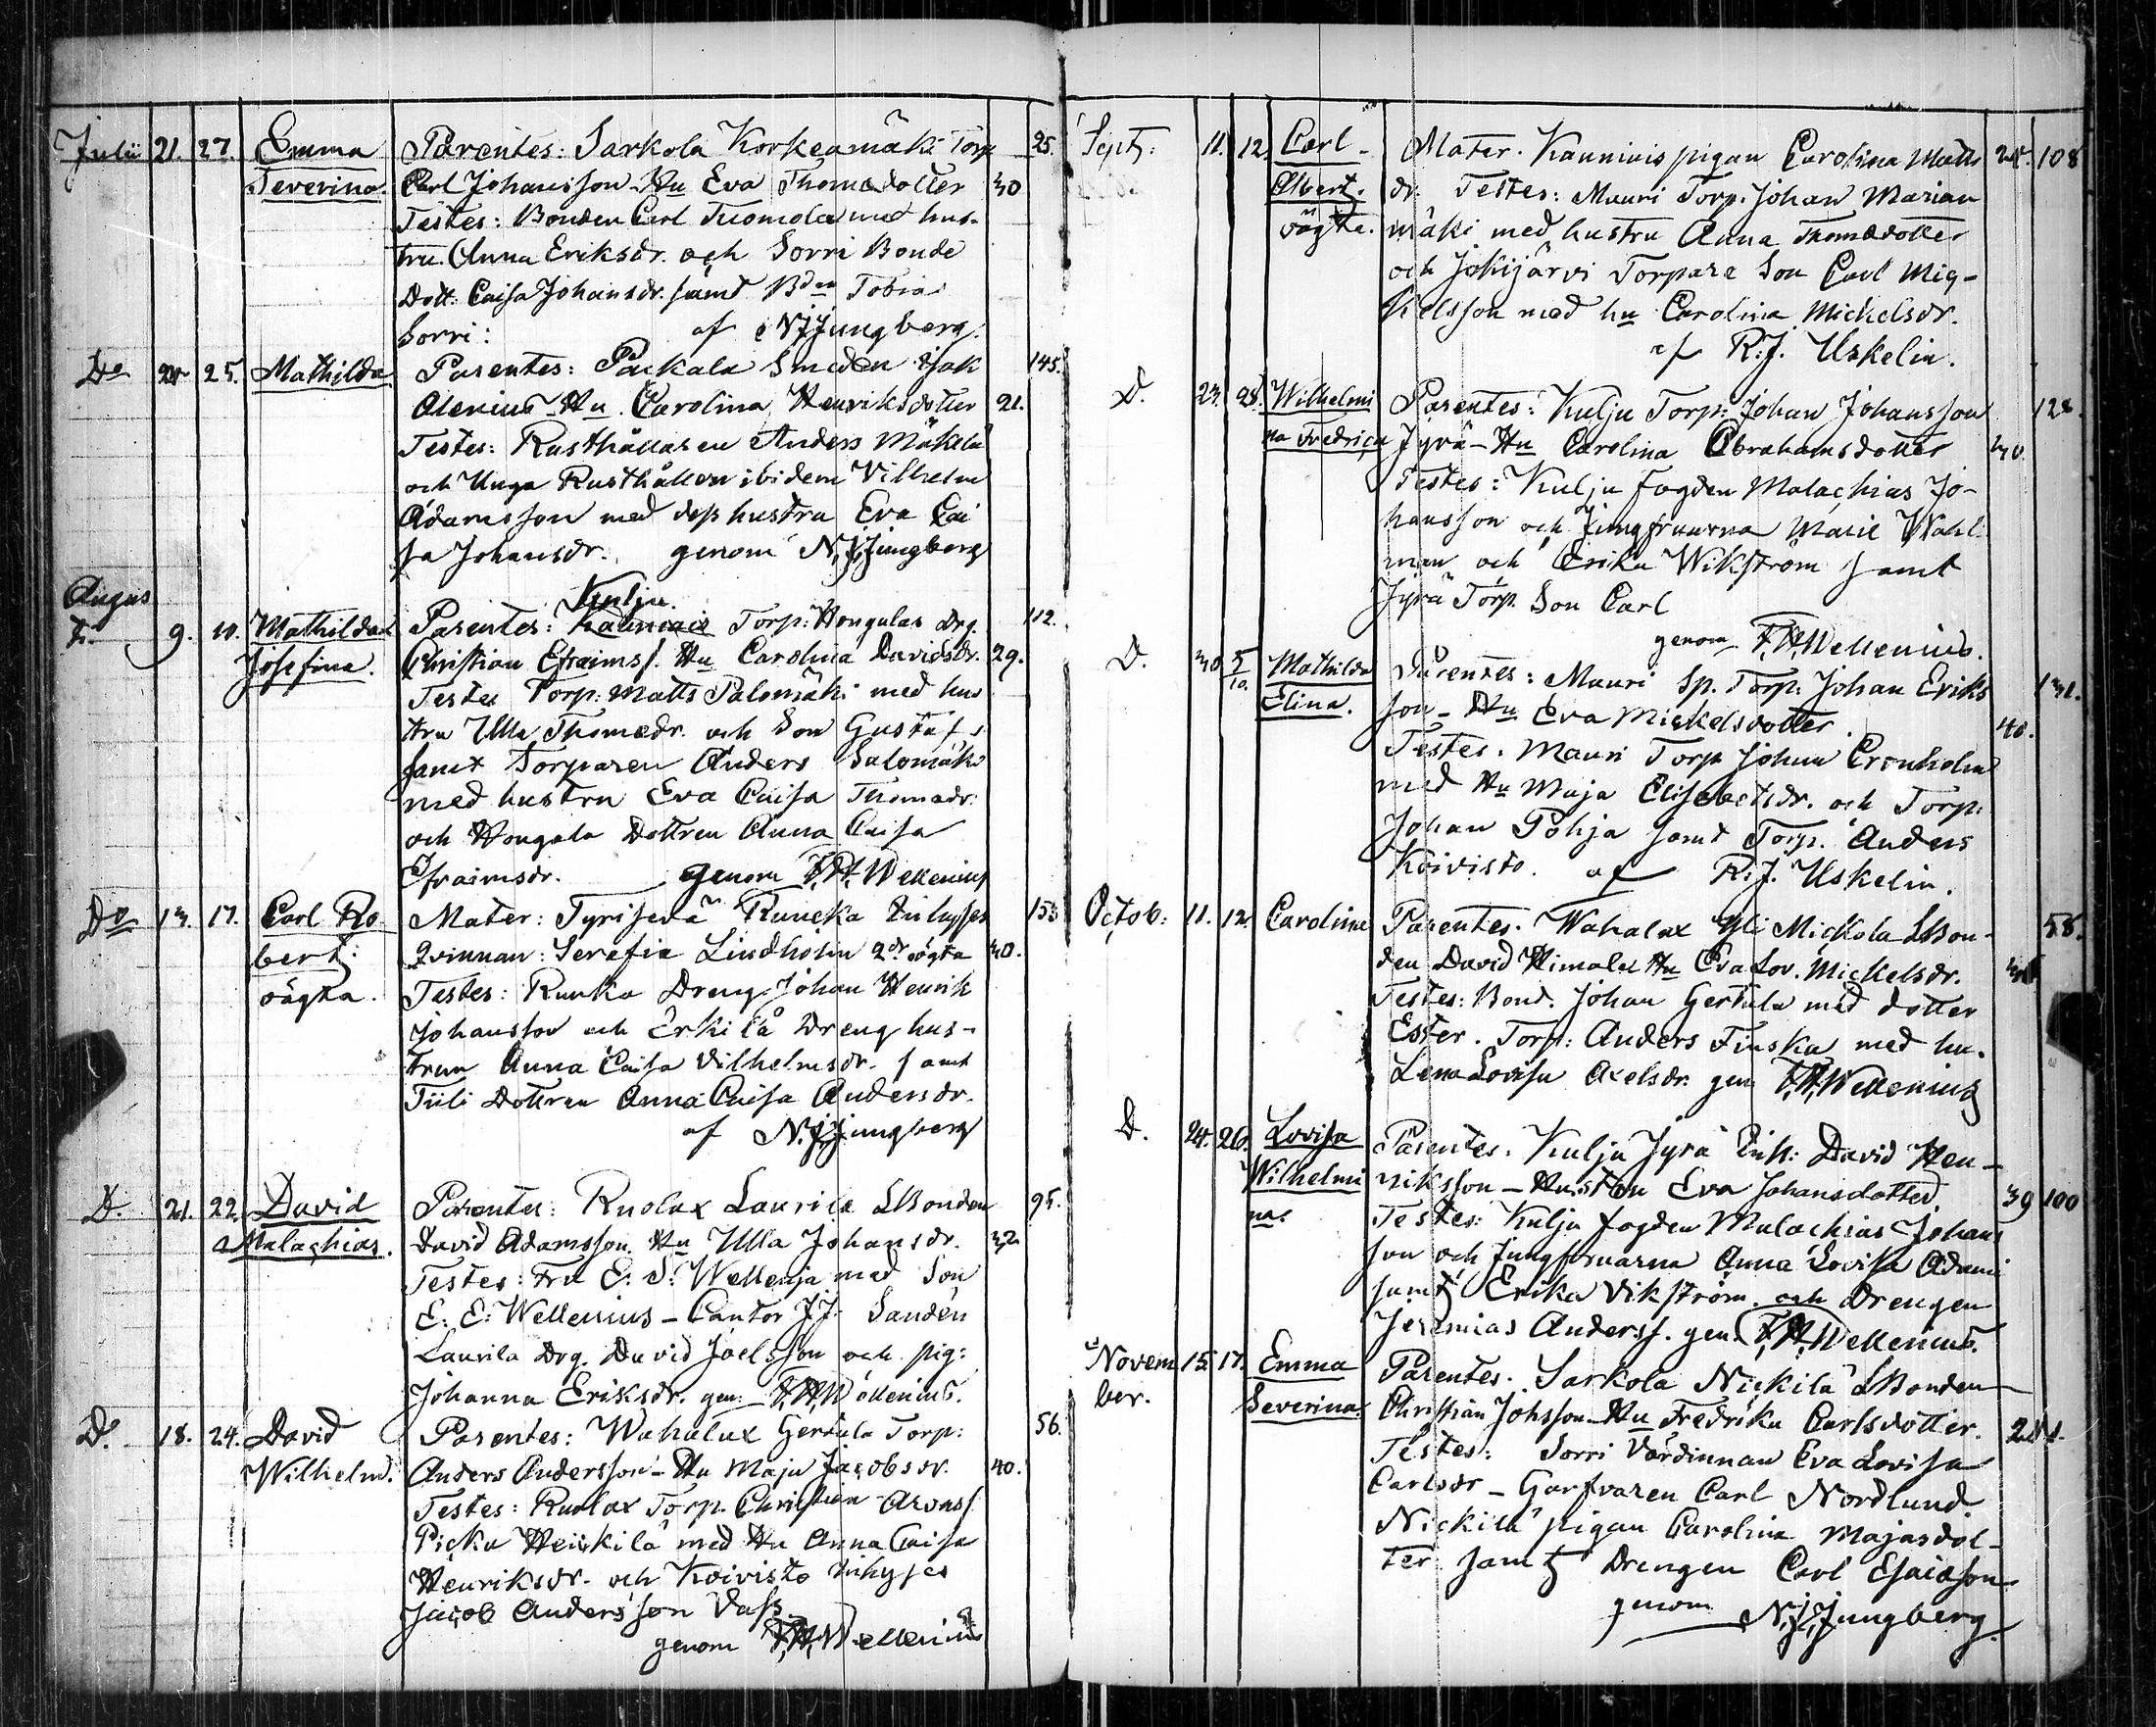 Julii 21. 27. Emma Parentes: Sarkola Korkeamäki Torp 25.
Severina. Carl Johansson Hu Eva Thomædotter 30
Testes: Bonden Carl Tuomola med hus-
tru Anna Eriksdr. och Sorri Bonde
Dott: Caisa Johansdr. samt Bden Tobias
Sorri: af N.J. Jungberg.
Do 25. Mathilda Parentes: Packala Smeden Isak 145.
Alenius Hu. Carolina Henriksdotter 21.
Testes: Rusthållaren Anders Mäkelä
och Unga Rusthållarn ibidem Vilhelm
Adamsson med dess hustru Eva Cai
sa Johansdr. genom N.J. Jungberg
Augus Kulju
t. 9. 10. Mathilda Parentes: Kauniais Torp: Hongulas Drg. 112.
Josefina. Christian Efraimss. Hu Carolina Davidsdr. 29.
Testes Torp: Matts Palomäki med hus
tru Ulla Thomædr. och Son Gustaf
samt Torparen Anders Salomäki
med hustru Eva Caisa Thomædr:
och Hongola Dottren Anna Caisa
Efraimsdr. genom F.H. Wellenius
Do 13. 17. Carl Ro- Mater: Tyrisevä Runcka Inhyses 153
bert: Qvinnan: Serafia Lindholm 2dr oägta 40.
oägta. Testes: Runka Dreng Johan Henrik
Johansson och Erkilä Dreng hus-
trun Anna Caisa Vilhelmsdr. samt
Tiili Dottren Anna Caisa Andersdr.
af N.J. Jungberg
D. 21. 22. David Parentes: Ruolax Laurila LBonden 95.
Malachias. David Adamsson. Hu Ulla Johansdr. 32
Testes: Fru E: S: Wellenia med Son
E: E: Wellenius - Cantor J.J. Sandén
Laurila Drg. David Joelsson och pig:
Johanna Eriksdr. gen: F.H. Wellenius.
D. 18. 24. David Parentes: Wahalux Gertula Torp: 56.
Wilhelm. Anders Andersson - Hu Maja Jacobsdr. 40.
Testes: Ruolax Torp. Christian Aronss
Picku Heickilä med Hu Anna Caisa
Henriksdr. och Koivisto Inhyses
Jacob Andersson Dass
genom F.H. Wellenius
Sept: 11. 12. Carl Mater. Kauniais pigan Carolina Matts 108
Albert. dr. Testes: Mauri Torp. Johan Marian
oägta. mäki med hustru Anna Thomædotter
och Jokijärvi Torpare Son Carl Mig-
kelsson med hu Carolina Mickelsdr.
af R.J. Uskelin.
D. 23. 28. Wilhelmi Parentes: Kulju Torp: Johan Johansson 128.
na Fredrica Jyrä - Hu Carolina Abrahamsdotter 30
Testes: Kulju fogden Malachias Jo-
hansson och Jungfruarna Marie Wahl-
man och Erika Wikström samt
Jyrä Torp. Son Carl
genom F.H. Wellenius.
D. 30 5/10. Mathilda Parentes: Mauri Sp. Torp: Johan Eriks 131.
Elina. son - Hu Eva Mickelsdotter. 40.
Testes. Mauri Torp Johan Cronholm
med Hu Maja Elisabetsdr. och Torp:
Johan Pohja samt Torp. Anders
Koivisto. af R.J. Uskelin.
Octob: 11. 12. Carolina Parentes. Wahalax Yli Mickola LBon- 58.
den David Himala Hu Eva Lov. Mickelsdr.
Testes: Bond. Johan Gertula med dotter
Ester. Torp: Anders Finska med hu.
Lena Lovisa Axelsdr. gen F.H. Wellenius
D. 24. 26. Lovisa Parentes. Kulju Jyrä Inh: David Hen-
Wilhelmi riksson - Hustru Eva Johansdotter. 39 100
na. Testes: Kulju fogden Malachias Johans
son och Jungfruarna Anna Lovisa Adami
samt Erika Vikström. och Drengen
Jeremias Anderss. gen. F.H. Wellenius.
Novem 15. 17. Emma Parentes. Sarkola Nickilä LBonden
ber. Severina. Christian Johsson - Hu Fredrika Carlsdotter.
Testes: Sorri Värdinnan Eva Lovisa
Carlsdr - Garfvaren Carl Nordlund
Nickilä pigan Carolina Majasdot-
ter samt Drengen Carl Esaiasson
genom N.J. Jungberg.